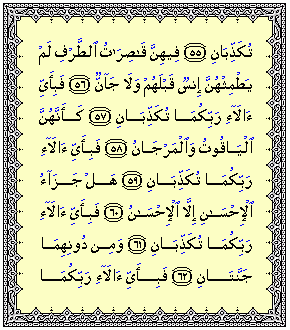 تُكَذِّبَانِ ﴿٥٥﴾ فِيهِنَّ قَٰصِرَٰتُ ٱلطَّرْفِ لَمْ
يَطْمِثْهُنَّ إِنسٌ قَبْلَهُمْ وَلَا جَآنٌّ ﴿٥٦﴾ فَبِأَيِّ
ءَالَآءِ رَبِّكُمَا تُكَذِّبَانِ ﴿٥٧﴾ كَأَنَّهُنَّ
ٱلْيَاقُوتُ وَٱلْمَرْجَانُ ﴿٥٨﴾ فَبِأَيِّ ءَالَآءِ
رَبِّكُمَا تُكَذِّبَانِ ﴿٥٩﴾ هَلْ جَزَآءُ
ٱلْإِحْسَٰنِ إِلَّا ٱلْإِحْسَٰنُ ﴿٦٠﴾ فَبِأَيِّ ءَالَآءِ
رَبِّكُمَا تُكَذِّبَانِ ﴿٦١﴾ وَمِن دُونِهِمَا
جَنَّتَانِ ﴿٦٢﴾ فَبِأَيِّ ءَالَآءِ رَبِّكُمَا